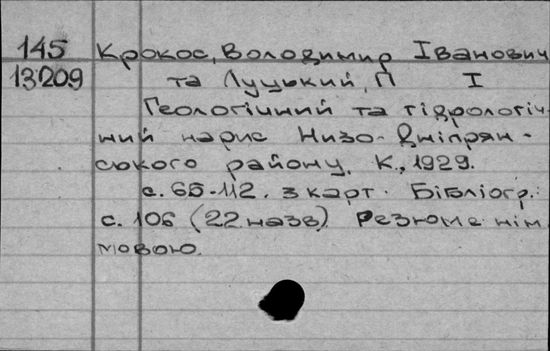 145 Крокос, Володимир Іванович
13209 та Луцький, П І
Геологічний та гідрологіч-
ний нарис Низо-Дніпрян-
ського району. К., 1929.
с. 65-112. з карт. Бібліогр.:
с. 106 (22 назв). Резюме нім.
мовою.